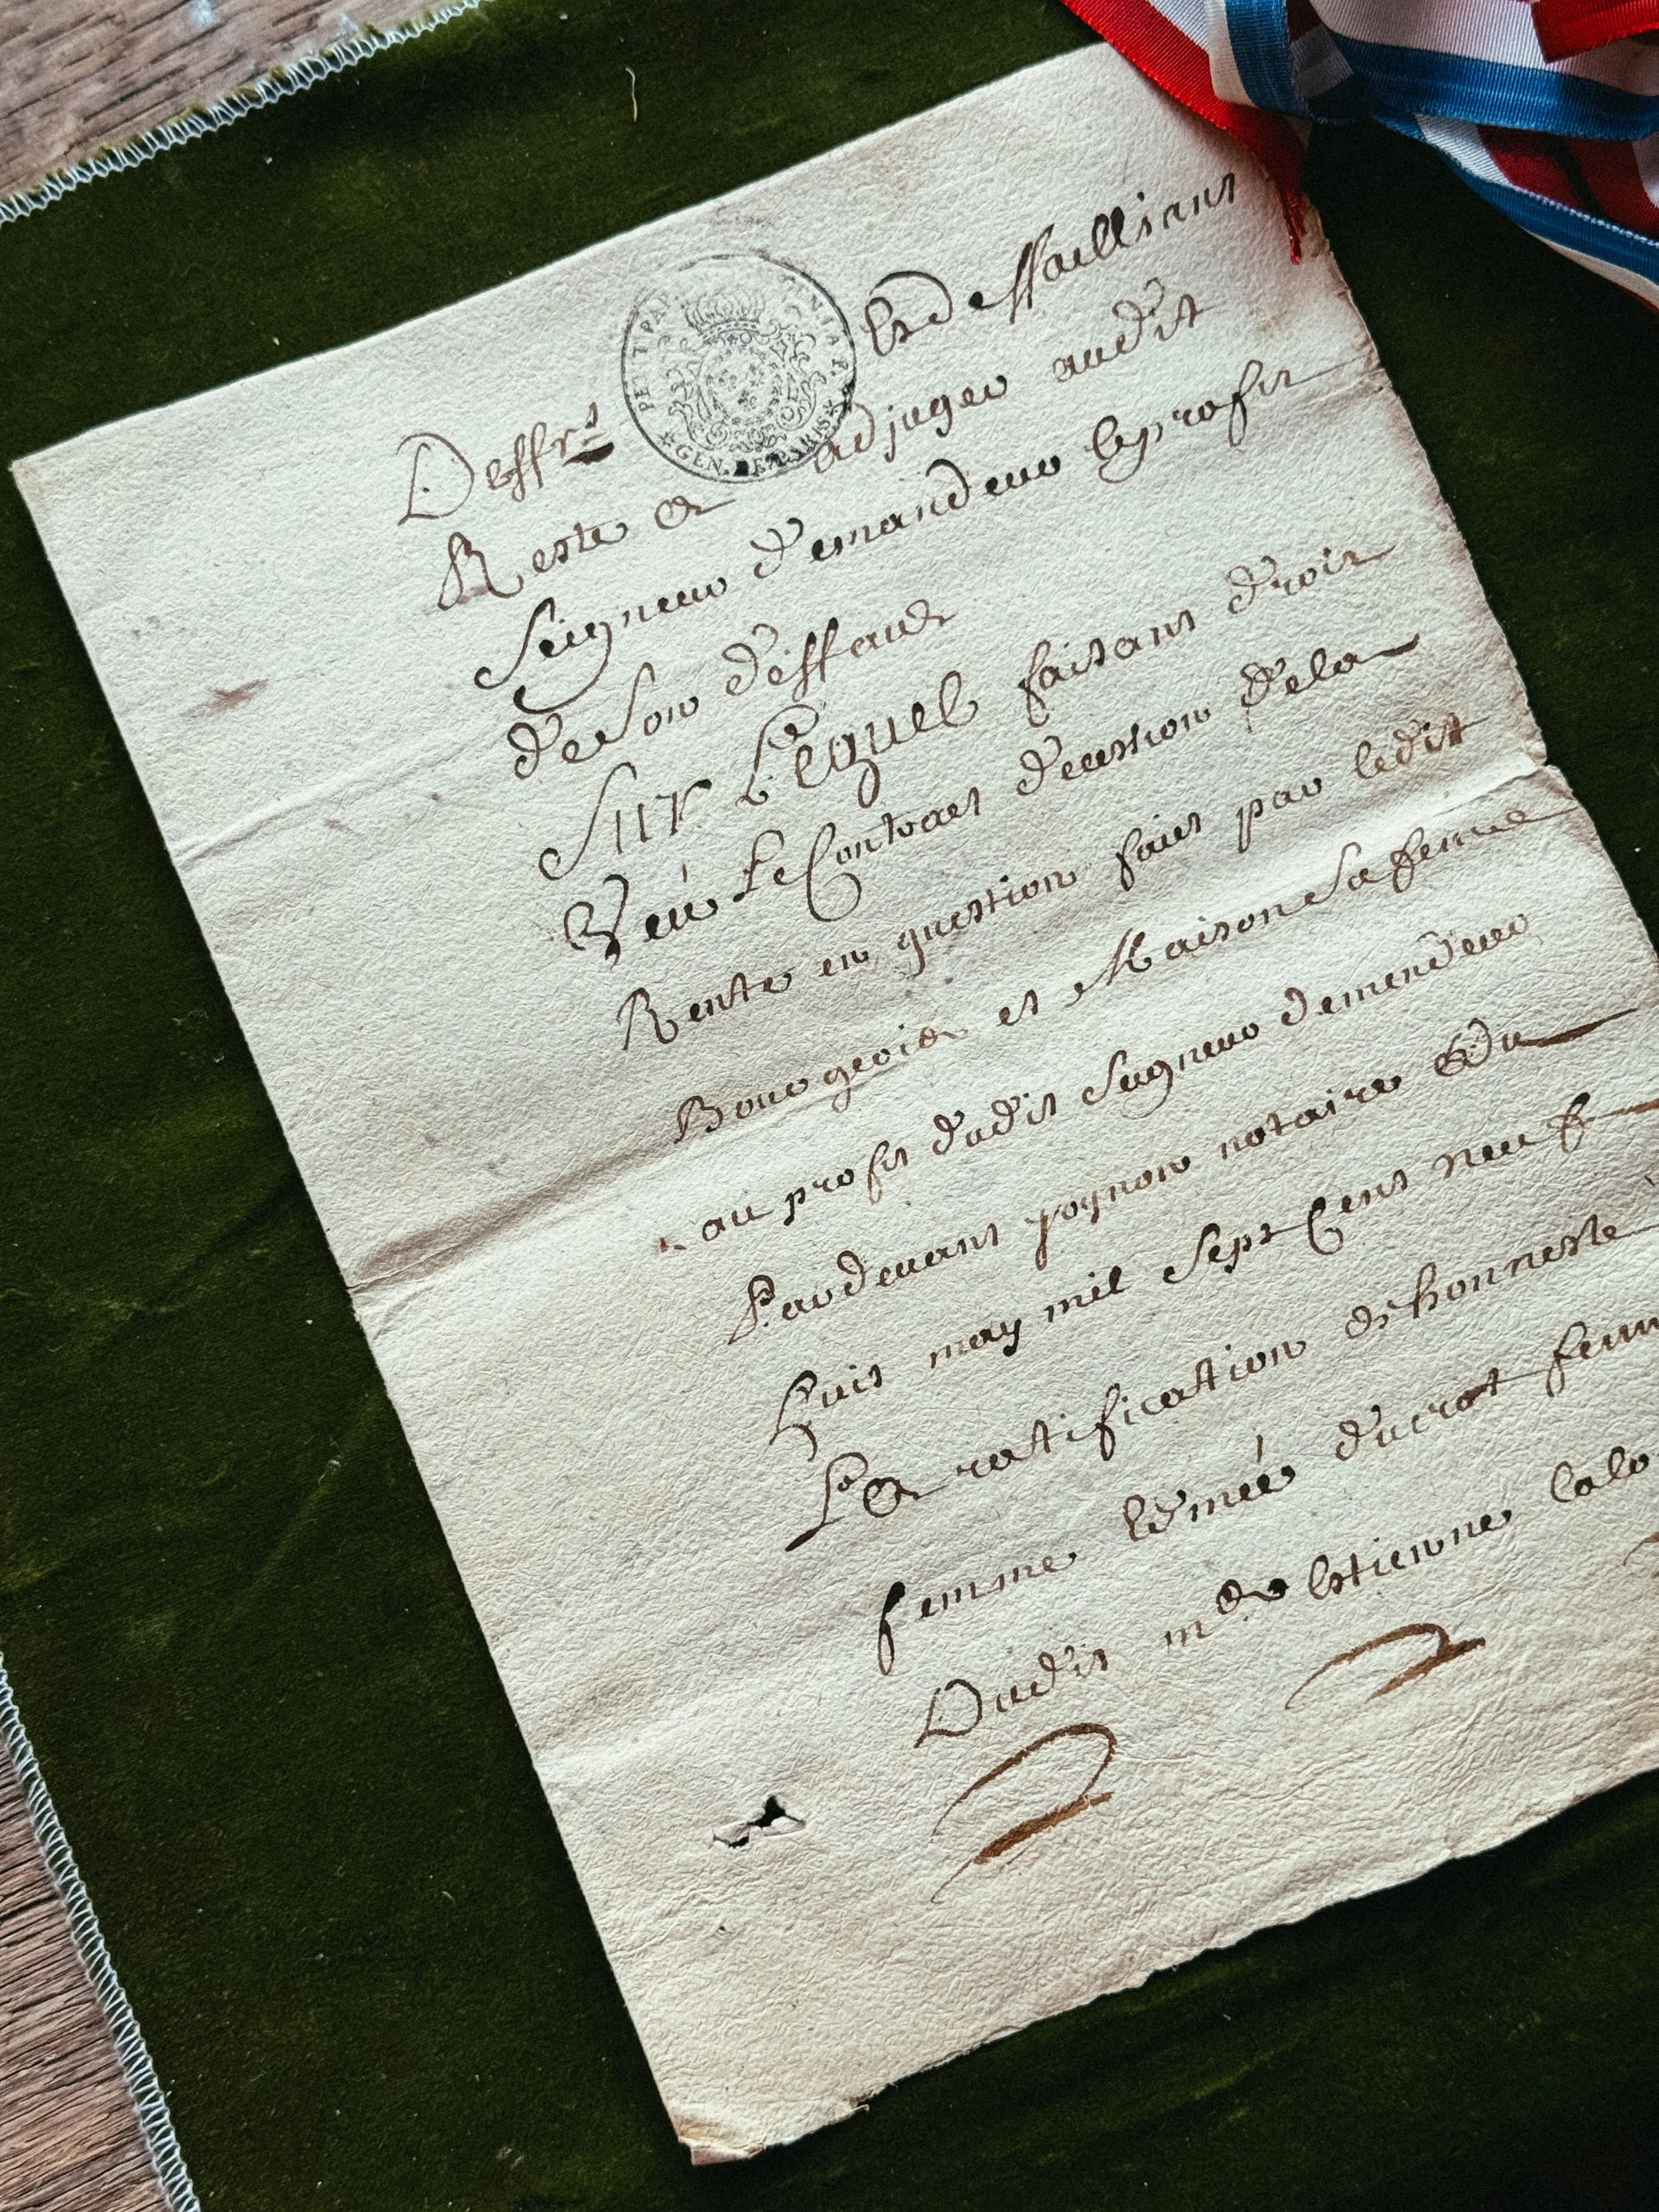 PETIT PAP
GEN. DE PARIS
Deffr.s et deffaillians
Reste et adjuger audit
Seigneur demandeur leprofit
deson deffault
Sur Lequel faisant droit
Veü Le Contract decession dela
Rente en question faict par ledit
Bourgeois et Maison Sa femme
au profit dudit Seigneur demendeur
Pardevant notaire du
huit may mil Sept Cent neuf
La ratification de honneste
femme Edmée ducrot femm
Dudit Estienne